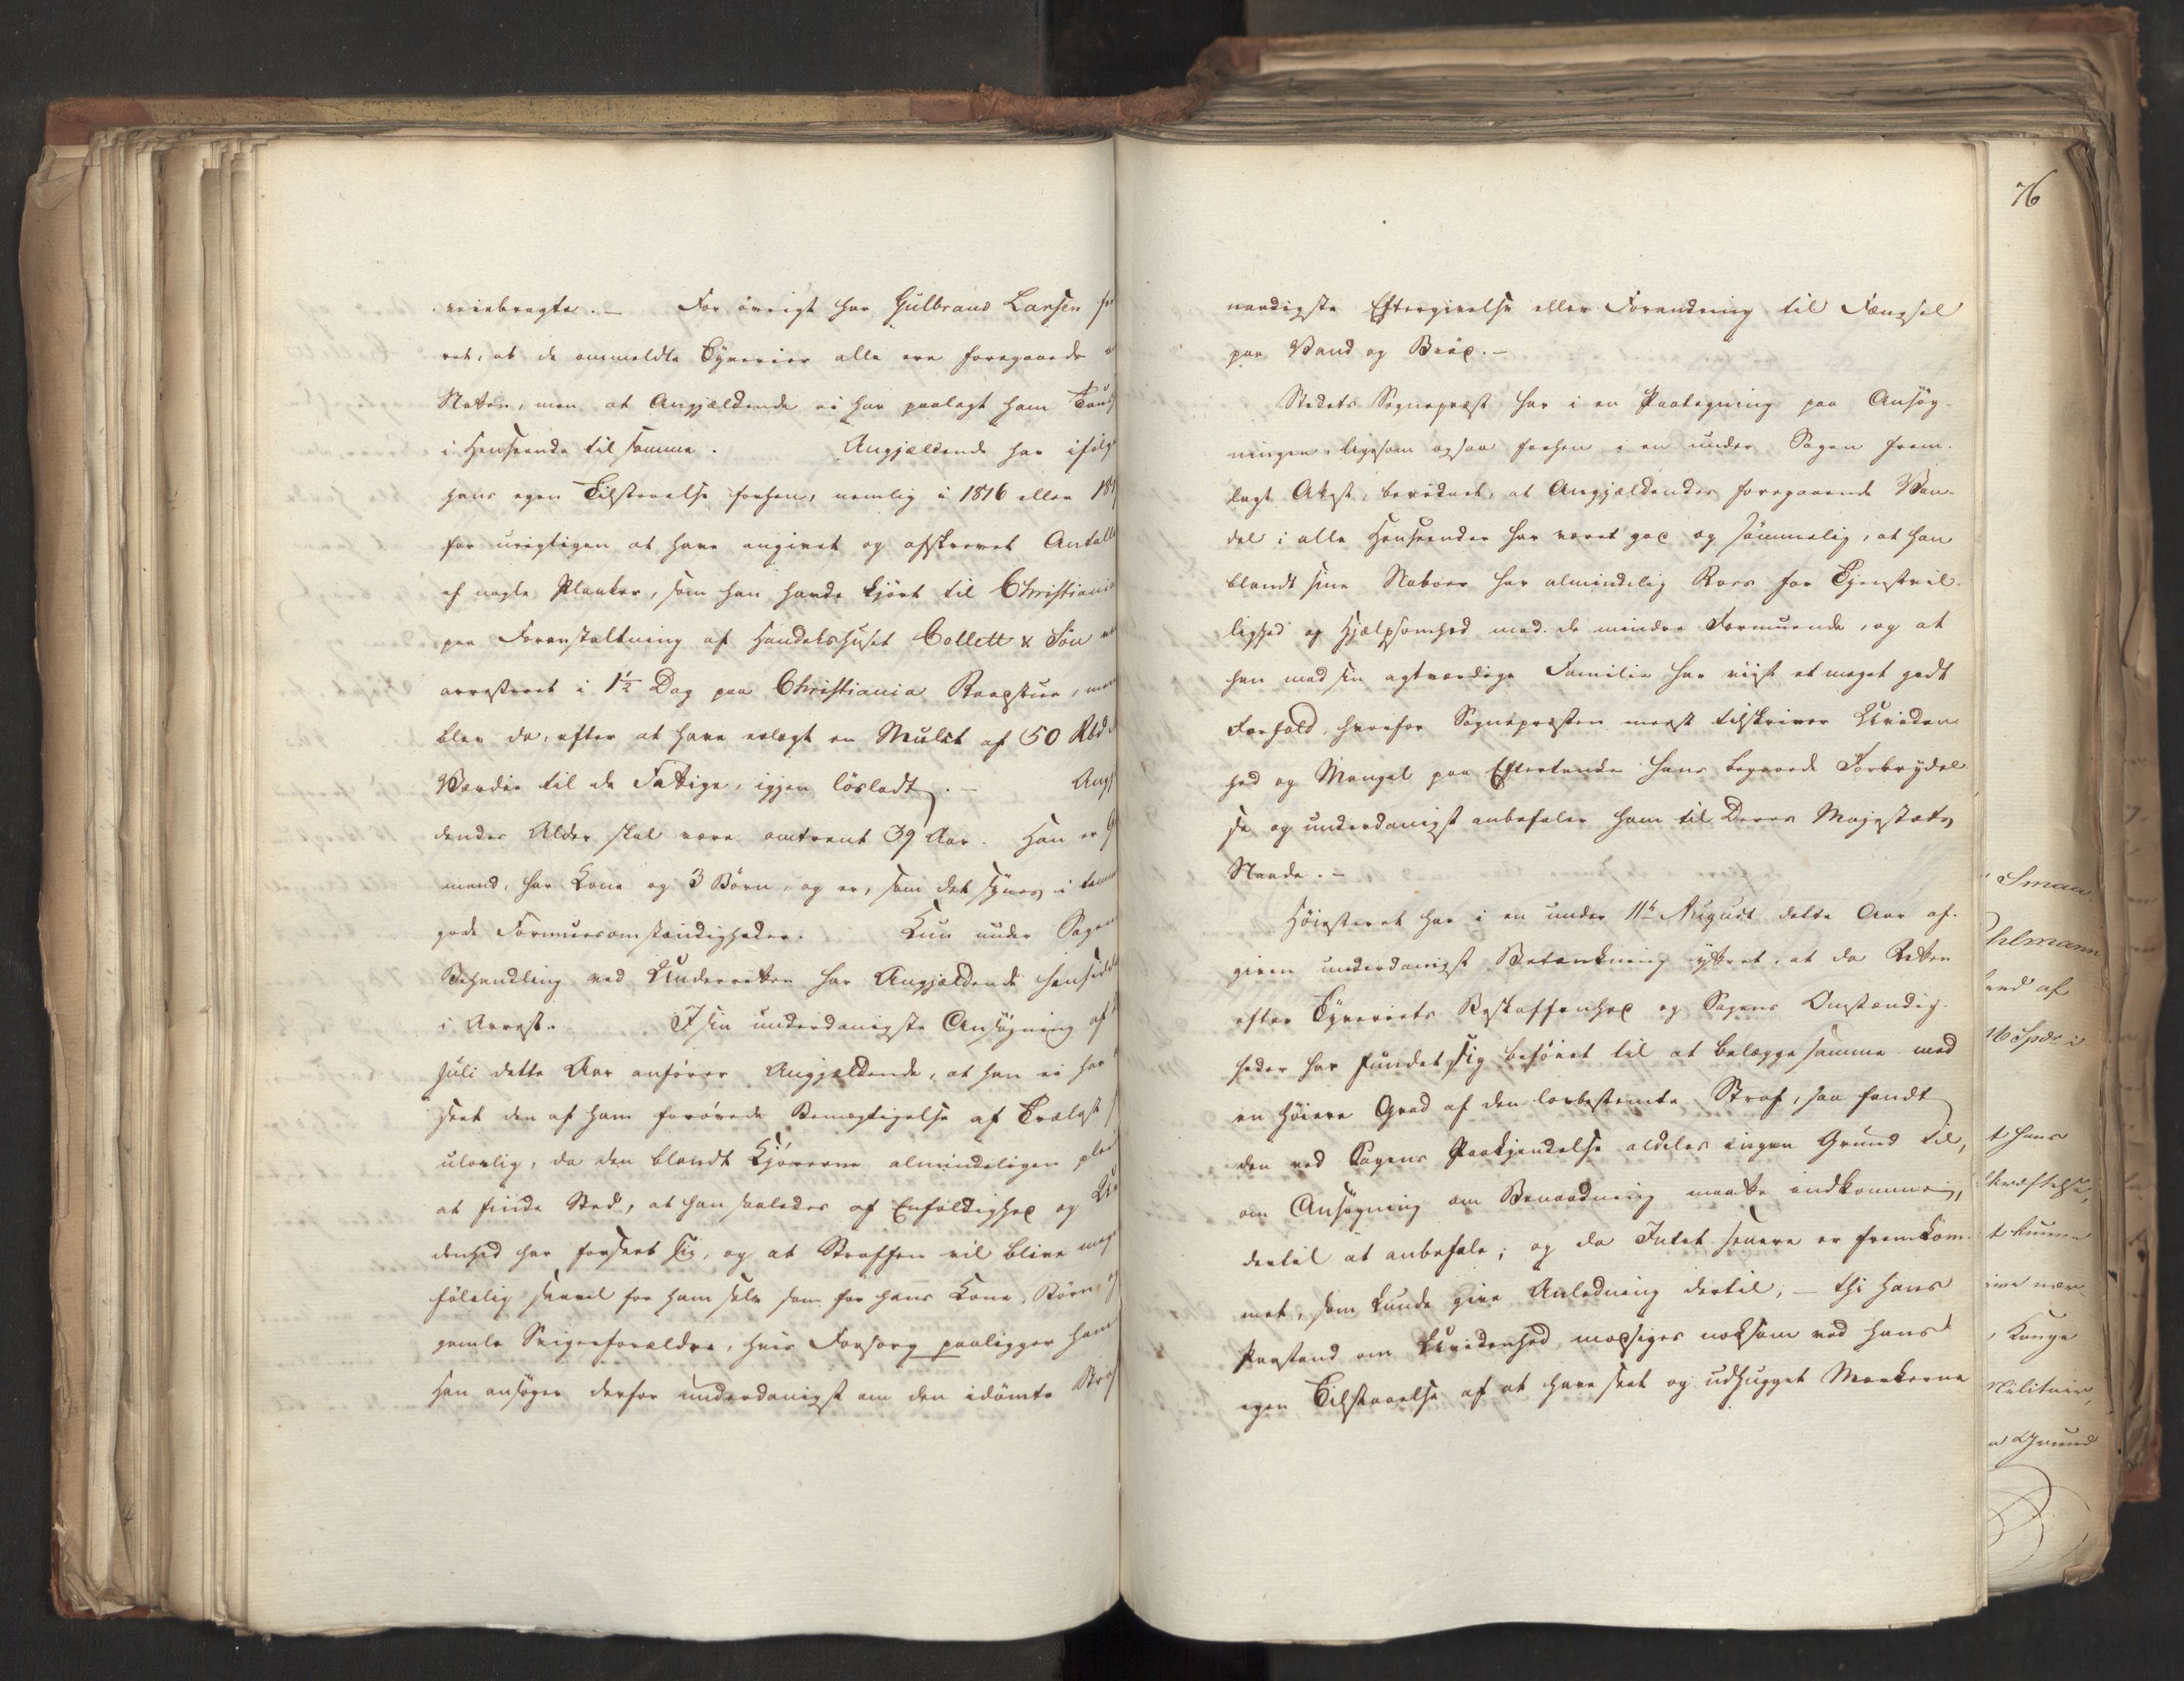 veiebragte. — For övrigt har Gulbrand Larsen for
ret, at de anmeldte Tyverier alle ere foregaaede
Natten, men at Angjældende ei har paalagt ham Taus
i Henseende til samme. Angjældende har ifølge
hans egen Tilstaaelse forhen, nemlig i 1816 eller 181
for urigtigen at have angivet og afskrevet Antalle
af nogle Planker, som han havde kjört til Christiania
paa Foranstaltning af Handelshuset Collett & Søn
arresteret i 1½ Dag paa Christiania Raadstue, men
blev da, efter at have erlagt en Mulct af 50 Rbd
Værdie til de Fattige, igjen lösladt. — Angj
dendes Alder skal være omtrent 39 Aar. Han er G
mand, har Kone og 3 Börn, og er, som det synes, i temme
gode Formuesomstændigheder. Kun under Sagens
Behandling ved Underretten har Angjældende hensidde
i Arrest. I sin underdanigste Ansögning af
Juli dette Aar anförer Angjældende, at han ei har
seet den af ham forövede Bemægtigelse af Trælast
ulovlig, da den blandt Kjörerne almindeligen plei
at finde Sted, at han saaledes af Enfoldighed og Uv
denhed har forseet sig, og at Straffen vil blive meget
fölelig saavel for ham selv som for hans Kone, Börn og
gamle Svigerforældre, hvis Forsorg paaligger ham
Han ansöger derfor underdanigst om den idömte Straf
naadigste Eftergivelse eller Forandring til Fængsel
paa Vand og Bröd. —
Stedets Sognepræst har i en Paategning paa Ansög-
ningen, ligesom ogsaa forhen i en under Sagen frem-
lagt Attest, bevidnet, at Angjældendes foregaaende Van-
del i alle Henseender har været god og sömmelig, at han
blandt sine Naboer har almindelig Roes for Tjenstvil-
lighed og Hjælpsomhed mod de mindre Formuende, og at
han med sin agtværdige Familie har viist et meget godt
Forhold, hvorfor Sognepræsten meest tilskriver Uviden-
hed og Mangel paa Eftertanke hans begaaede Forbrydel
se og underdanigst anbefaler ham til Deres Majestæts
Naade. —
Höiesteret har i en under 11te August dette Aar af-
given underdanigst Betænkning yttret, at da Retten
efter Tyveriets Beskaffenhed og Sagens Omstændig-
heder har fundet sig beföiet til at belægge samme med
en höiere Grad af den lovbestemte Straf, saa fandt
den ved Sagens Paakjendelse aldeles ingen Grund til,
om Ansögning om Benaadning maatte indkomme,
dertil at anbefale; og da Intet senere er fremkom-
met, som kunde give Anledning dertil, — thi hans
Paastand om Uvidenhed modsiges noksom ved hans
egen Tilstaaelse af at have seet og udhugget Mærkerne
76
Smaa
hlmann
ved af
16 Spd i
t hans
kræftelse,
t kunne
ive nær
, Konge
Militair,
Grund